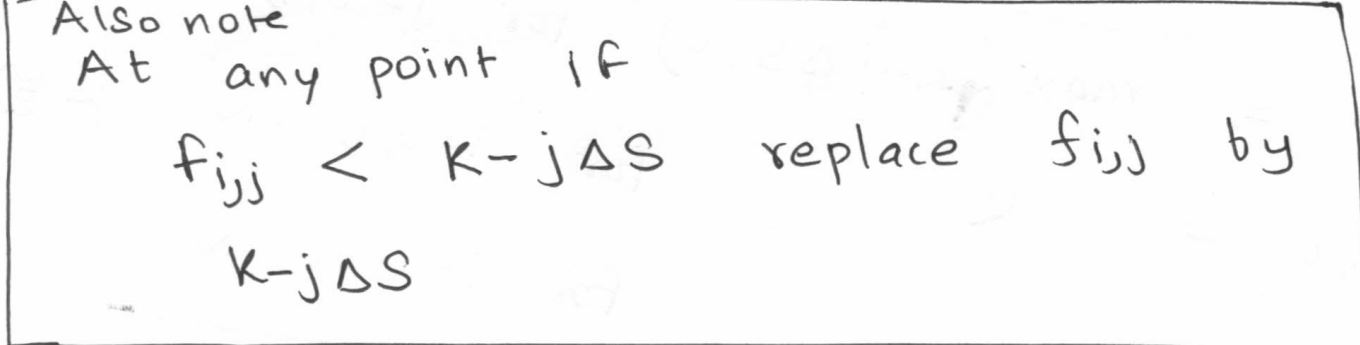 Also note
At any point if
fi,j < K-jΔS replace fi,j by
K-jΔS